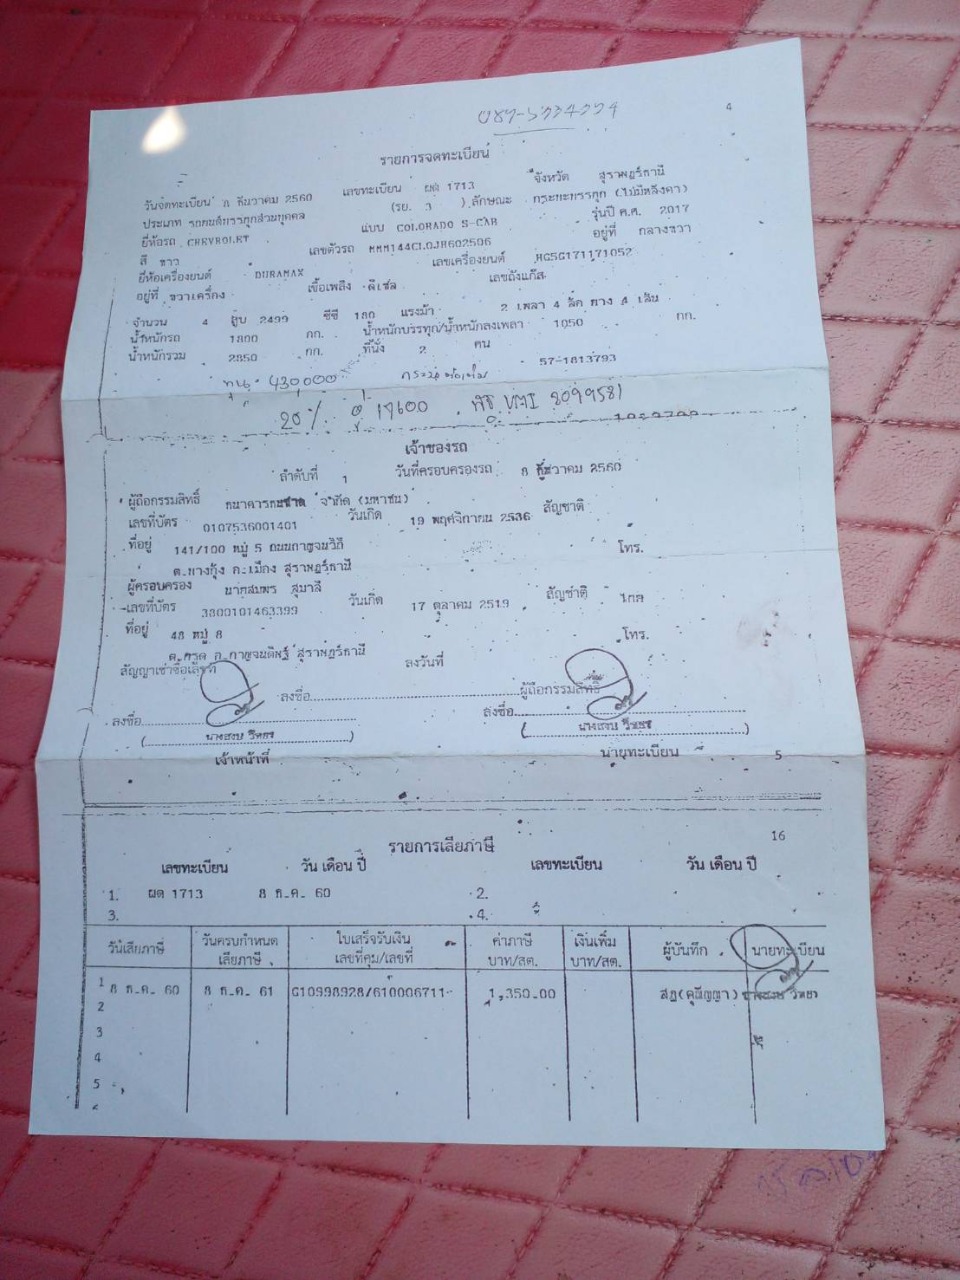 4
รายการจดทะเบียน
วันจดทะเบียน 8 ธันวาคม 2560 เลขทะเบียน ผต 1713 จังหวัด สุราษฎร์ธานี
ประเภท รถยนต์บรรทุกส่วนบุคคล (รย. 3 ) ลักษณะ กระบะบรรทุก (ไม่มีหลังคา)
ยี่ห้อรถ CHEVROLET แบบ COLORADO S-CAB รุ่นปี ค.ศ. 2017
สี ขาว เลขตัวรถ อยู่ที่ กลางขวา
ยี่ห้อเครื่องยนต์ DURAMAX เลขเครื่องยนต์
อยู่ที่ ขวาเครื่อง เชื้อเพลิง ดีเซล เลขถังแก๊ส
จำนวน 4 สูบ 2499 ซีซี 180 แรงม้า 2 เพลา 4 ล้อ ยาง 4 เส้น
น้ำหนักรถ 1800 กก. น้ำหนักบรรทุก/น้ำหนักลงเพลา 1050 กก.
น้ำหนักรวม 2850 กก. ที่นั่ง 2 คน
57-1813793
ทุน. 430,000
20% 17600 VMI 2099581
เจ้าของรถ
ลำดับที่ 1 วันที่ครอบครองรถ 8 ธันวาคม 2560
ผู้ถือกรรมสิทธิ์ ธนาคารธนชาต จำกัด (มหาชน)
เลขที่บัตร 0107536001401 วันเกิด 19 พฤศจิกายน 2536 สัญชาติ
ที่อยู่ 141/100 หมู่ 5 ถนนกาญจนวิถี โทร.
ต.บางกุ้ง อ.เมือง สุราษฎร์ธานี
ผู้ครอบครอง นายสมพร สุมาลี
เลขที่บัตร 3800101463399 วันเกิด 17 ตุลาคม 2519 สัญชาติ ไทย
ที่อยู่ 48 หมู่ 8 โทร.
ต.กรูด อ.กาญจนดิษฐ์ สุราษฎร์ธานี
สัญญาเช่าซื้อเลขที่ ลงวันที่
ลงชื่อ ผู้ถือกรรมสิทธิ์
ลงชื่อ ลงชื่อ
( ) ( )
เจ้าหน้าที่ นายทะเบียน
5
16
รายการเสียภาษี
เลขทะเบียน วัน เดือน ปี เลขทะเบียน วัน เดือน ปี
1. ผต 1713 8 ธ.ค. 60 2.
3. 4.
วันเสียภาษี วันครบกำหนดเสียภาษี ใบเสร็จรับเงิน เลขที่คุม/เลขที่ ค่าภาษี บาท/สต. เงินเพิ่ม บาท/สต. ผู้บันทึก นายทะเบียน
1 8 ธ.ค. 60 8 ธ.ค. 61 G10998928/610006711 1,350.00
2
3
4
5